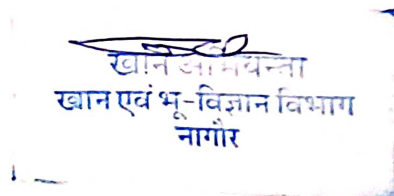 खनि अभियन्ता
खान एवं भू-विज्ञान विभाग
नागौर